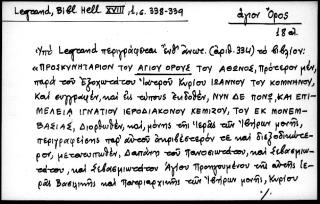 Legrand, Bibl Hell XVIII, 1, σ. 338-339
ἅγιον Ὄρος
18 α.
Ὑπὸ Legrand περιγράφεται (ἀριθ. 334) τὸ βιβλίον:
«ΠΡΟΣΚΥΝΗΤΑΡΙΟΝ ΤΟΥ ΑΓΙΟΥ ΟΡΟΥΣ ΤΟΥ ΑΘΩΝΟΣ, Πρότερον μὲν,
παρὰ τοῦ Ἐξοχωτάτου Ἰατροῦ Κυρίου ΙΩΑΝΝΟΥ ΤΟΥ ΚΟΜΝΗΝΟΥ,
καὶ συγγραφὲν, καὶ εἰς τύπους ἐκδοθὲν, ΝΥΝ ΔΕ ΠΟΝΩ, ΚΑΙ ΕΠΙ-
ΜΕΛΕΙΑ ΙΓΝΑΤΙΟΥ ΙΕΡΟΔΙΑΚΟΝΟΥ ΧΕΜΙΖΟΥ, ΤΟΥ ΕΚ ΜΟΝΕΜ-
ΒΑΣΙΑΣ, Διορθωθὲν, καὶ, μόνης τῆς Ἱερᾶς τῶν Ἰβήρων μονῆς,
περιγραφείσης παρ' αὐτοῦ ἀκριβέστερόν τε καὶ διεξοδικώτε-
ρον, μετατυπωθὲν, Δαπάνῃ τοῦ Πανοσιωτάτου, καὶ Σεβασμιω-
τάτου, καὶ Ἁγίου Προηγουμένου τῆς αὐτῆς Ἱε-
ρᾶς Βασιλικῆς καὶ Πατριαρχικῆς τῶν Ἰβήρων μονῆς, Κυρίου
./.